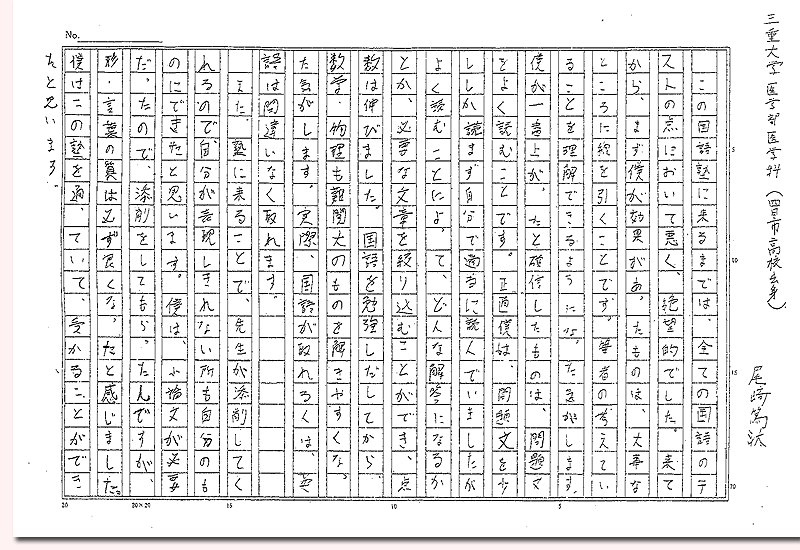 三重大学医学部医学科(四日市高校出身)
尾崎篤汰
この国語塾に来るまでは、全ての国語のテ
ストの点において悪く、絶望的でした。来て
から、まず僕が効果があったものは、大事な
ところに線を引くことです。筆者の考えてい
ることを理解できるようになった気がします。
僕が一番上がったと確信したものは、問題文
をよく読むことです。正直僕は、問題文を少
ししか読まず自分で適当に読んでいましたが
よく読むことによって、どんな解答になるか
とか、必要な文章を絞り込むことができ、点
数は伸びました。国語を勉強しだしてから、
数学・物理も難関大のものを解きやすくなっ
た気がします。実際、国語が取れるくは、英
語は間違いなく取れます。
また、塾に来ることで、先生が添削してく
れるので、自分が表現しきれない所も自分のも
のにできたと思います。僕は、小論文が必要
だったので、添削をしてもらったんですが、
形・言葉の質は必ず良くなったと感じました。
僕はこの塾を通っていて、受かることができ
たと思います。
No.
20
20×20
15
10
5
5
10
15
20